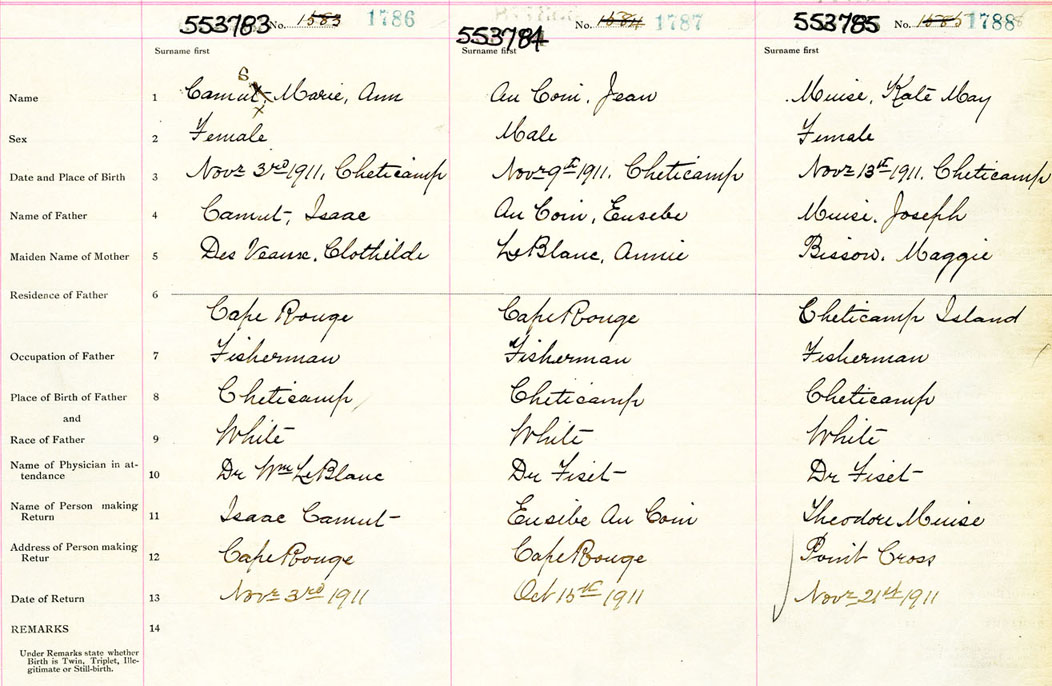 553783 No. 1583 1786 553784 No. 1584 1787 553785 No. 1585 1788
Surname first Surname first Surname first
Name 1 Camut, Marie, Ann Au Coin, Jean Muise, Kate May
s
Sex 2 Female Male Female
Date and Place of Birth 3 Novr 3rd 1911, Cheticamp Novr 9th 1911. Cheticamp Novr 13th 1911. Cheticamp
Name of Father 4 Camut, Isaac Au Coin, Eusebe Muise, Joseph
Maiden Name of Mother 5 Des Veaux, Clothilde LeBlanc, Annie Bisson, Maggie
Residence of Father 6
Cape Rouge Cape Rouge Cheticamp Island
Occupation of Father 7 Fisherman Fisherman Fisherman
Place of Birth of Father 8 Cheticamp Cheticamp Cheticamp
and
Race of Father 9 White White White
Name of Physician in at-
tendance 10 Dr Wm LeBlanc Dr Fiset Dr Fiset
Name of Person making
Return 11 Isaac Camut Eusibe Au Coin Theodore Muise
Address of Person making
Retur 12 Cape Rouge Cape Rouge Point Cross
Date of Return 13 Novr 3rd 1911 Oct 15th 1911 Novr 21st 1911
REMARKS 14
Under Remarks state whether
Birth is Twin, Triplet, Ille-
gitimate or Still-birth.